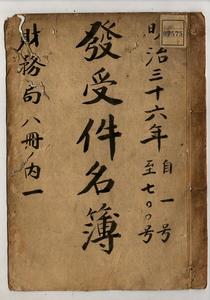 明治三十六年
自一号
至七〇〇号
發受件名簿
財務局八冊ノ内一